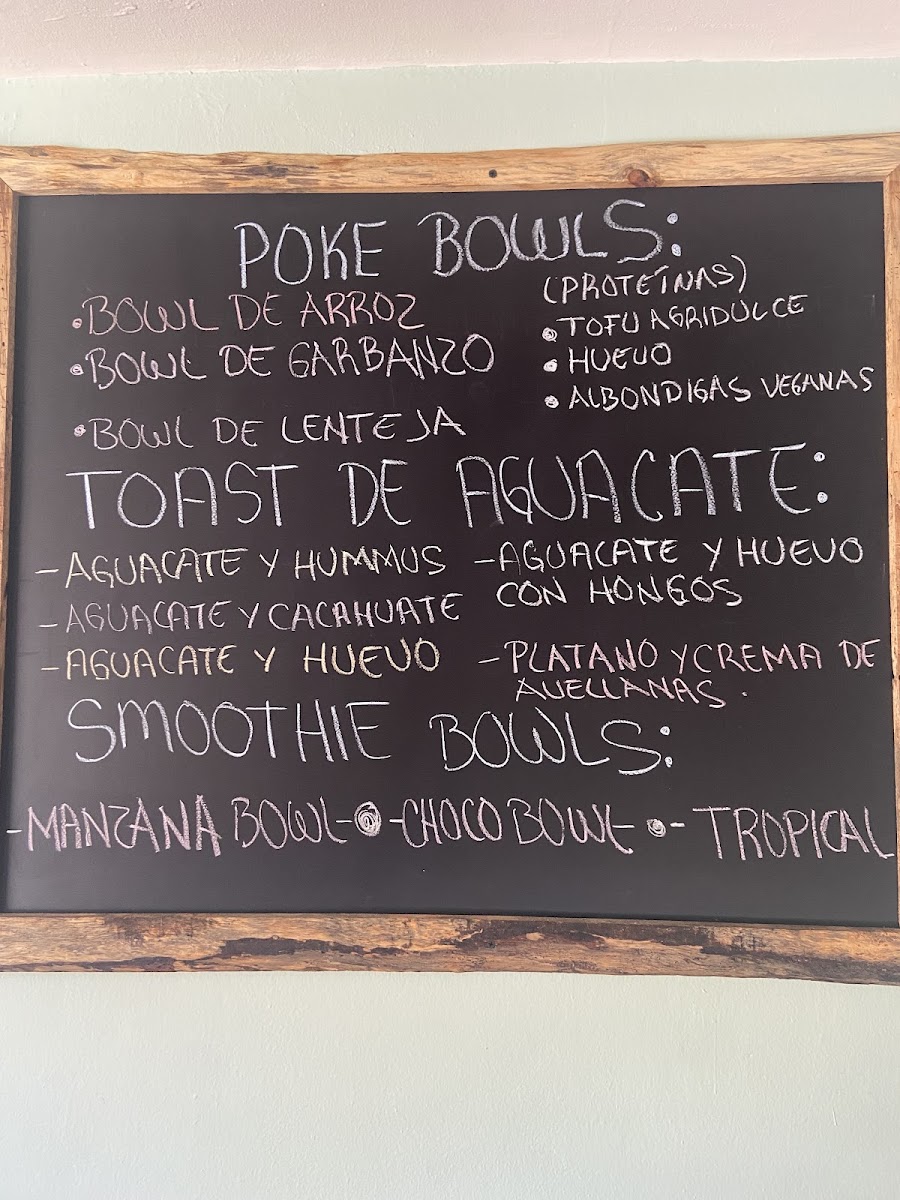 POKE BOWLS:
•BOWL DE ARROZ
•BOWL DE GARBANZO
•BOWL DE LENTEJA
(PROTEÍNAS)
•TOFU AGRIDULCE
•HUEVO
•ALBONDIGAS VEGANAS
TOAST DE AGUACATE:
-AGUACATE Y HUMMUS
-AGUACATE Y CACAHUATE
-AGUACATE Y HUEVO
-AGUACATE Y HUEVO
CON HONGOS
-PLATANO Y CREMA DE
AVELLANAS.
SMOOTHIE BOWLS:
-MANZANA BOWL-•-CHOCO BOWL-•-TROPICAL